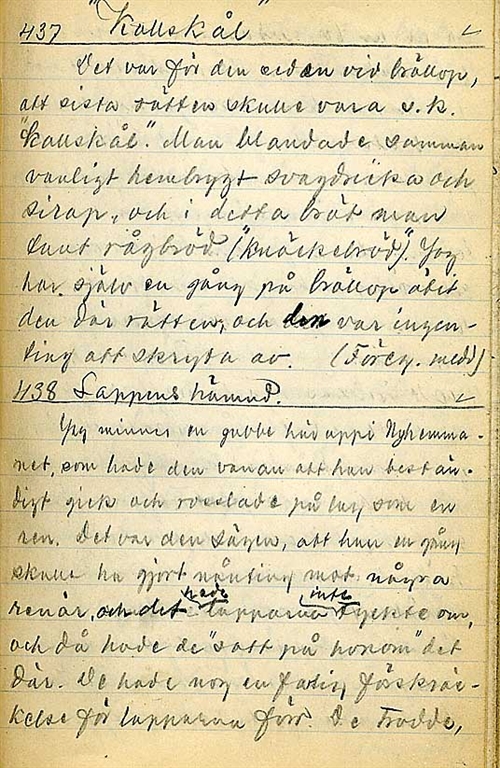 437 "Kallskål"
Det var för den sedan vid bröllop,
att sista rätten skulle vara s.k.
"kallskål". Man blandade samman
vanligt hembrygt svagdricka och
sirap, och i detta bröt man
tunt rågbröd ("knäckebröd"). Jag
har själv en gång på bröllop ätit
den där rätten, och den var ingen-
ting att skryta av. (Föreg. medd)
438 Lappens hämnd.
Jag minnes en gubbe här uppi Nyhemma-
net, som hade den vanan att han bestän-
digt gick och rosslade på sig som en
ren. Det var den sägen, att han en gång
skulle ha gjort nånting mot några
renar, och det hade lapparna inte tyckte om,
och då hade de "satt på honom" det
där. De hade nog en farlig förskräc-
kelse för lapparna förr. De trodde,